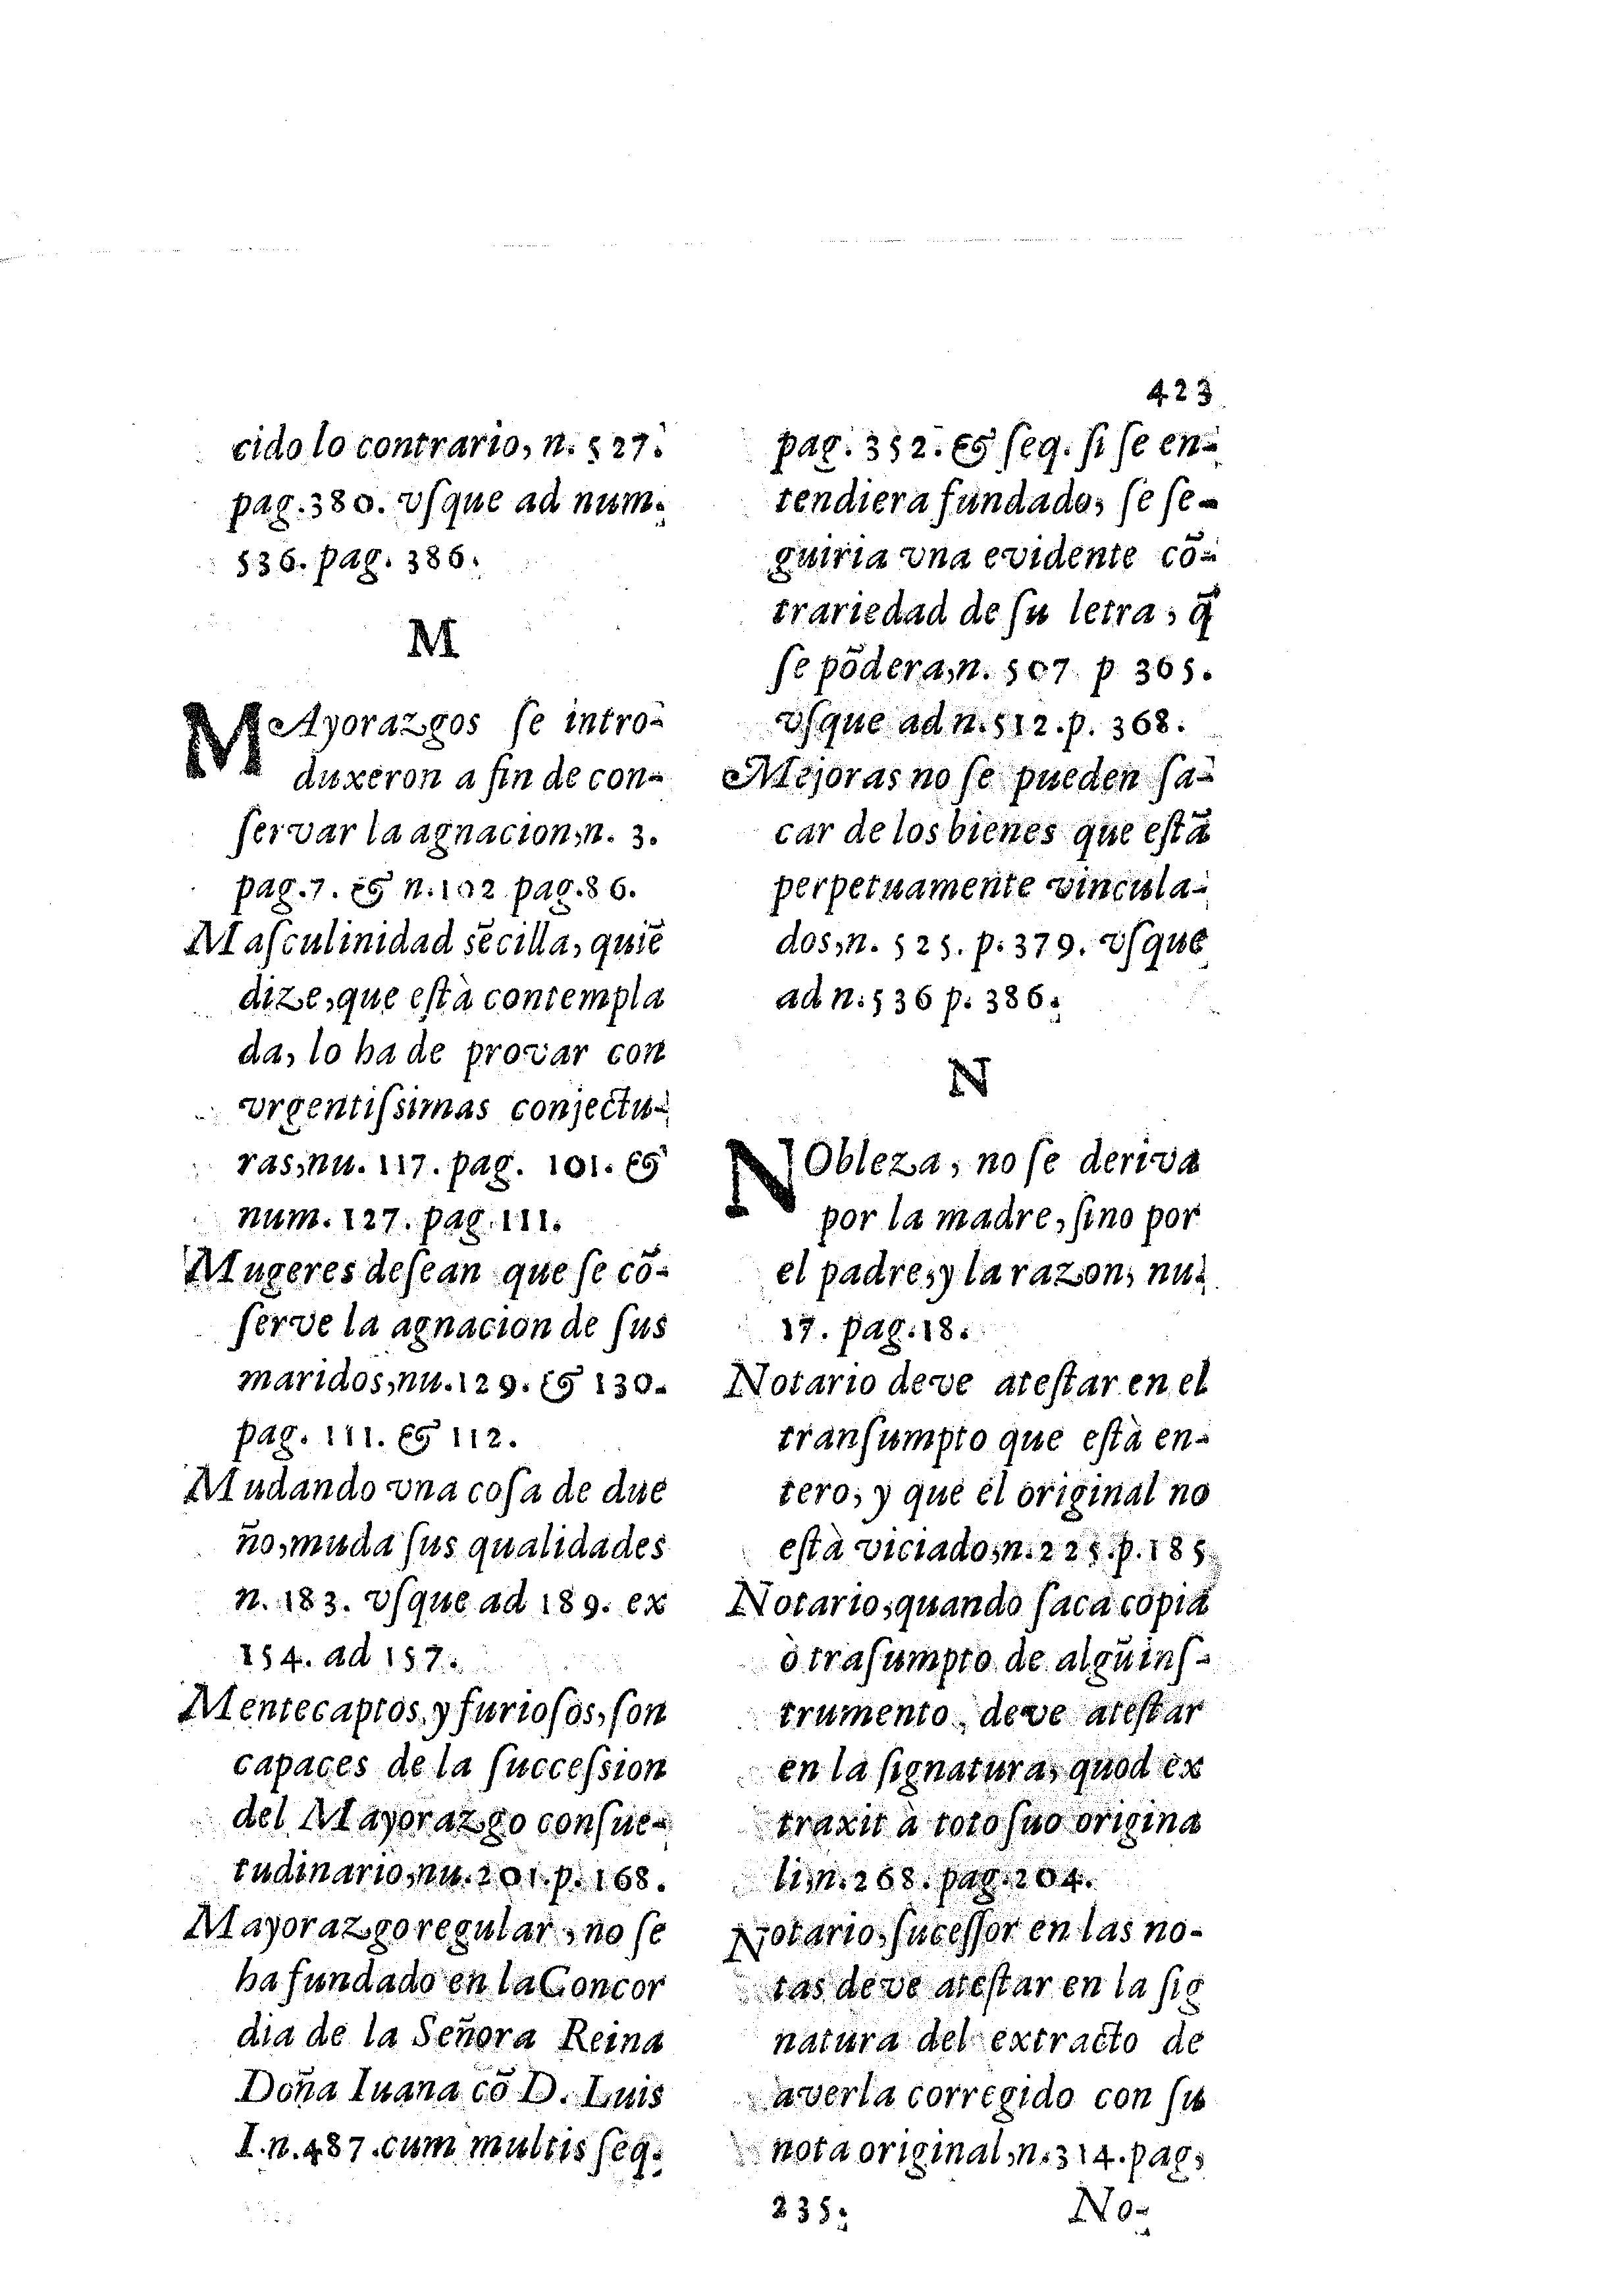 423
cido lo contrario, n. 527.
pag. 380. vſque ad num.
536. pag. 386.
M
MAyorazgos ſe intro-
duxeron a fin de con-
ſervar la agnacion, n. 3.
pag. 7. & n. 102 pag. 86.
Maſculinidad sẽcilla, quiẽ
dize, que eſtà contempla
da, lo ha de provar con
vrgentiſsimas conjectu-
ras, nu. 117. pag. 101. &
num. 127. pag. 111.
Mugeres deſean que ſe cõ-
ſerve la agnacion de ſus
maridos, nu. 129. & 130.
pag. 111. & 112.
Mudando vna coſa de due
ño, muda ſus qualidades
n. 183. vſque ad 189. ex
154. ad 157.
Mentecaptos, y furioſos, ſon
capaces de la ſucceſsion
del Mayorazgo conſue-
tudinario, nu. 201. p. 168.
Mayorazgo regular, no ſe
ha fundado en la Concor
dia de la Señora Reina
Doña Iuana cõ D. Luis
I. n. 487. cum multis ſeq.
pag. 352. & ſeq. ſi ſe en-
tendiera fundado, ſe ſe-
guiria vna evidente cõ-
trariedad de ſu letra, q̃
ſe põdera, n. 507 p 365.
vſque ad n. 512. p. 368.
Mejoras no ſe pueden ſa-
car de los bienes que eſtã
perpetuamente vincula-
dos, n. 525. p. 379. vſque
ad n. 536 p. 386.
N
NObleza, no ſe deriva
por la madre, ſino por
el padre, y la razon, nu.
17. pag. 18.
Notario deve ateſtar en el
tranſumpto que eſtà en-
tero, y que el original no
eſtà viciado, n. 225. p. 185
Notario, quando ſaca copia
ò traſumpto de algũ inſ-
trumento, deve ateſtar
en la ſignatura, quod ex
traxit à toto ſuo origina
li, n. 268. pag. 204.
Notario, ſuceſſor en las no-
tas deve ateſtar en la ſig
natura del extracto de
averla corregido con ſu
nota original, n. 314. pag,
235. No-